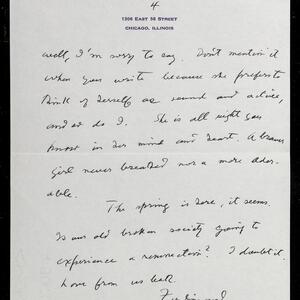 4
1306 EAST 56 STREET
CHICAGO, ILLINOIS
well, I'm sorry to say. Don't mention it
when you write because she prefers to
think of herself as sound and active,
and so do I. She is all right you
know in her mind and heart. A braver
girl never breathed nor a more ador-
able.
The spring is here, it seems.
Is our old broken society going to
experience a resurrection? I doubt it.
Love from us both.
Ferdinand